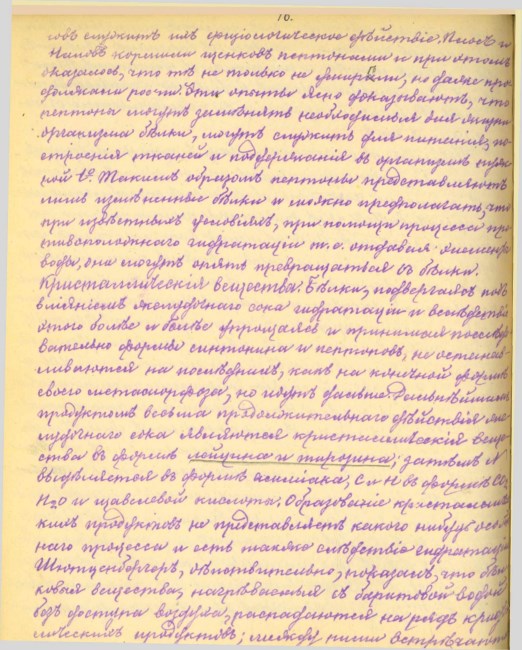 10.
совъ служитъ ихъ физіологическое дѣйствіе. Плосъ и
кормили щенковъ пептонами и при этомъ
оказалось, что тѣ не только не умирали, но даже про-
должали рости. Эти опыты ясно доказываютъ, что
пептоны могутъ замѣнять необходимые для
организма бѣлки, могутъ служить для питанія, по-
строенія тканей и поддержанія въ организмѣ
рой t°. Такимъ образомъ пептоны представляютъ
лишь измѣненные бѣлки и можно предполагать, что
при извѣстныхъ условіяхъ, при помощи процесса про-
тивоположнаго гидратаціи т.е. отдавая элементы
воды, они могутъ опять превращаться въ бѣлки.
Кристаллическія вещества. Бѣлки, подвергаясь подъ
вліяніемъ желудочнаго сока гидратаціи и вслѣдствіе
этого болѣе и болѣе упрощаясь и принимая послѣдо-
вательно формы синтонина и пептоновъ, не останав-
ливаются на послѣднихъ, какъ на конечной формѣ
своего метаморфоза, но идутъ дальше. Дальнѣйшимъ
продуктомъ весьма продолжительнаго дѣйствія же-
лудочнаго сока являются кристаллическія веще-
ства въ формѣ лейцина и тирозина; затѣмъ N
выдѣляется въ формѣ амміака, C и H въ формѣ CO₂,
H₂O и щавелевой кислоты. Образованіе кристалличес-
кихъ продуктовъ не представляетъ какого нибудь особен-
наго процесса и есть также слѣдствіе гидратаціи.
Шютценбергеръ, дѣйствительно, показалъ, что бѣл-
ковыя вещества, нагрѣваемыя съ баритовой водой
безъ доступа воздуха, распадаются на рядъ кристал-
лическихъ продуктовъ; между ними встрѣчаются